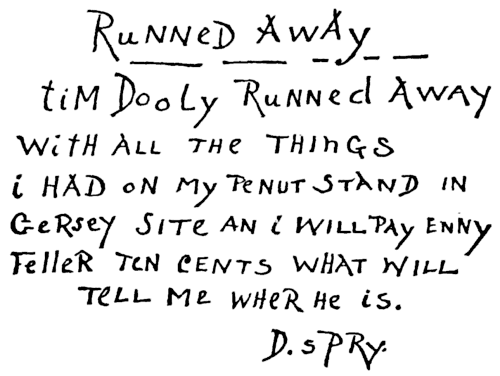 RuNNeD AwAy
tiM DooLy RuNNed AWAY
WitH ALL THe THInGS
i HAD oN My PeNUT STAND IN
GeRSey SITe AN i WILL PAy ENNy
FelleR TeN CENTS WHAT WILL
TELL Me WHeR He iS.
D. SPRy.